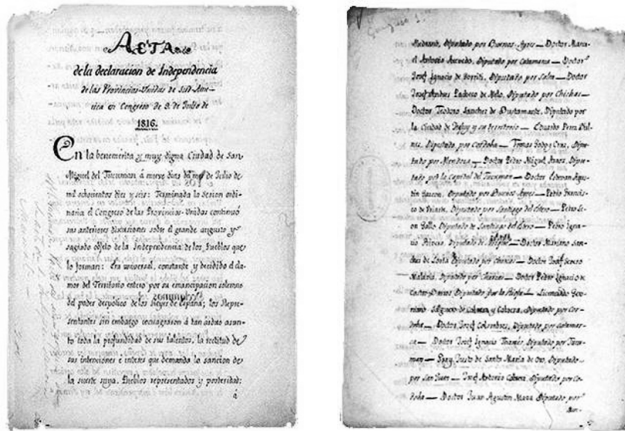 ACTA
de la declaracion de Independencia
de las Provincias-Unidas de Sud-Ame-
rica en Congreso de 9. de Julio de
1816.
En la benemerita y muy digna Ciudad de San
Miguel del Tucuman á nueve dias del mes de Julio de
mil ochocientos diez y seis: Terminada la sesion ordi-
naria el Congreso de las Provincias-Unidas continuó
sus anteriores discusiones sobre el grande augusto y
sagrado objeto de la Independencia de los Pueblos que
lo forman: Era universal, constante y decidido el cla-
mor del Territorio entero por su emancipacion solemne
del poder despotico de los Reyes de España; los Repre-
sentantes sin embargo consagraron á tan arduo asun-
to toda la profundidad de sus talentos, la rectitud de
sus intenciones é interes que demanda la sancion de
la suerte suya, Pueblos representados y posteridad:
á
Diputado por Buenos Ayres — Doctor Manu-
el Antonio Acevedo, Diputado por Catamarca — Doctor
José Ignacio de Gorriti, Diputado por Salta — Doctor
José Andres Pacheco de Melo, Diputado por Chichas —
Doctor Teodoro Sanchez de Bustamante, Diputado por
la Ciudad de Jujuy y su territorio — Eduardo Perez Bul-
nes, Diputado por Cordoba — Tomas Godoy Cruz, Dipu-
tado por Mendoza — Doctor Pedro Miguel Araoz, Dipu-
tado por la Capital del Tucuman — Doctor Estevan Agus-
tin Gazcon, Diputado por Buenos Ayres — Pedro Francis-
co de Uriarte, Diputado por Santiago del Estero — Pedro Le-
on Gallo, Diputado de Santiago del Estero — Pedro Igna-
cio Rivera, Diputado de — Doctor Mariano San-
chez de Loria, Diputado por Charcas — Doctor José Severo
Malabia, Diputado por Charcas — Doctor Pedro Ignacio de
Castro-Barros, Diputado por la Rioja — Licenciado Gero-
nimo Salguero de Cabrera y Cabrera, Diputado por Cor-
doba — Doctor José Colombres, Diputado por Catamar-
ca — Doctor José Ignacio Thames, Diputado por Tucu-
man — Fray Justo de Santa Maria de Oro, Diputado
por San Juan — José Antonio Cabrera, Diputado por Co-
doba — Doctor Juan Agustin Maza, Diputado por